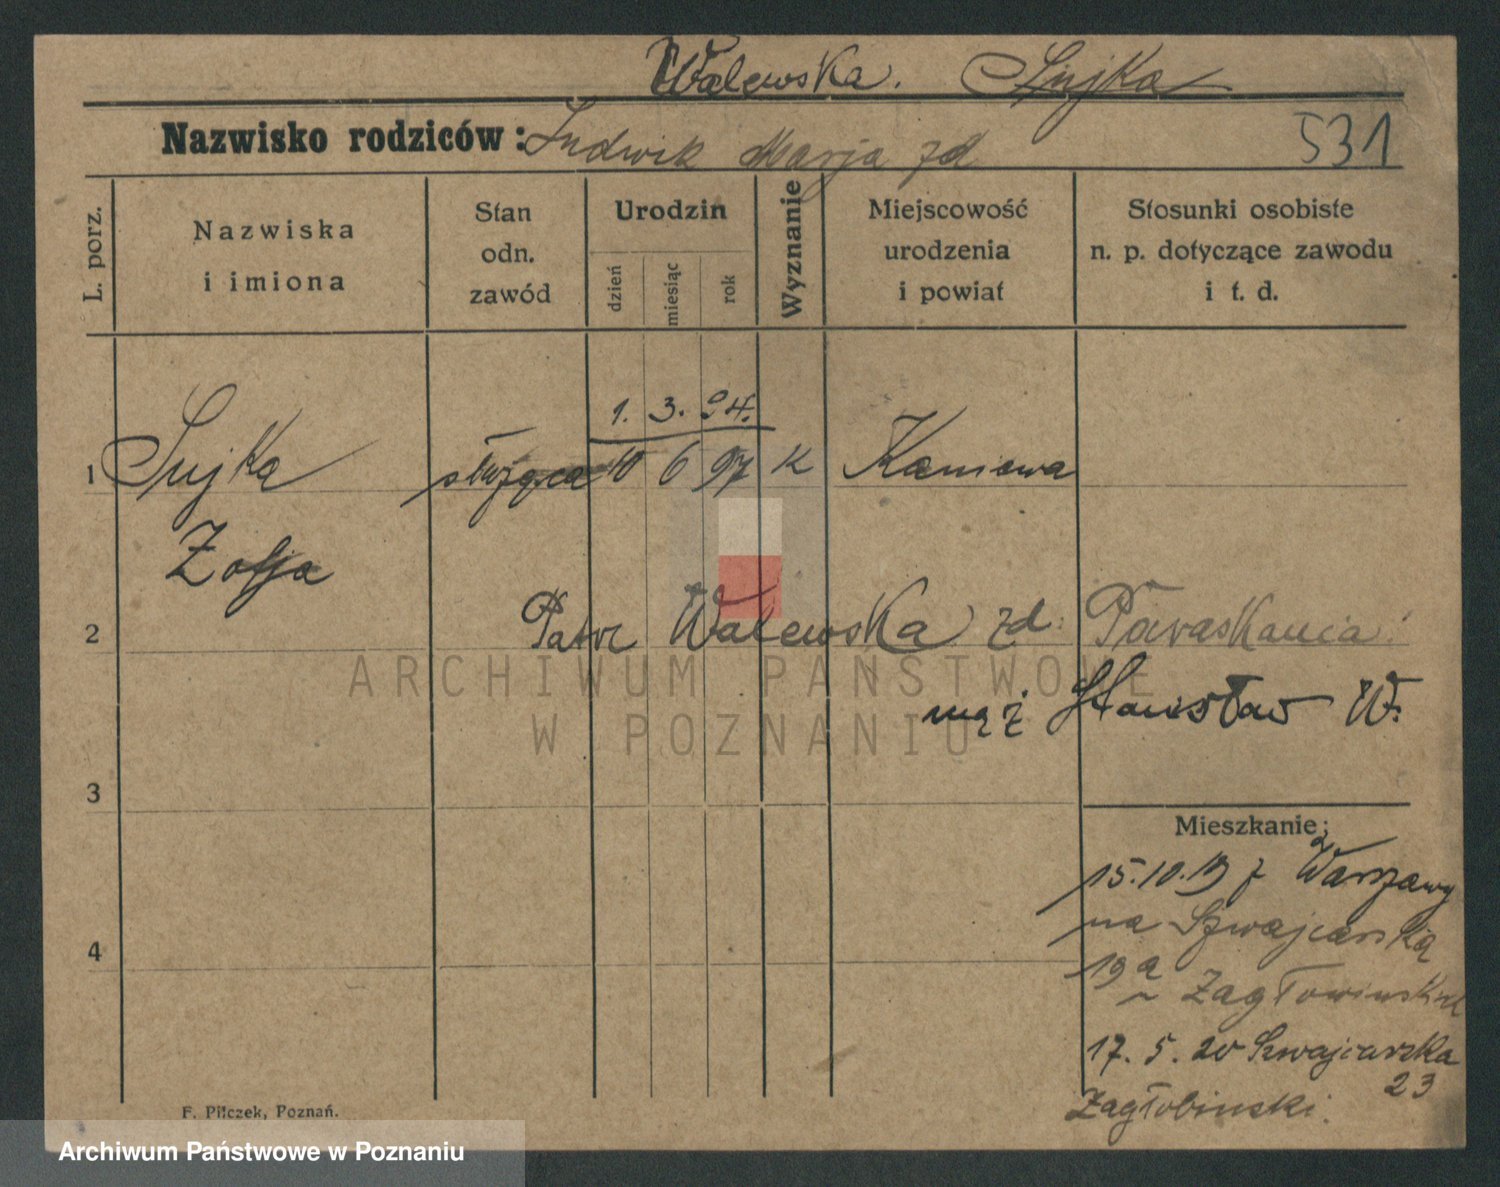 Walewska. Sujka
Nazwisko rodziców: Ludwik Marja zd
531
L. porz.
Nazwiska
i imiona
Stan
odn.
zawód
Urodzin
dzień
miesiąc
rok
Wyznanie
Miejscowość
urodzenia
i powiat
Stosunki osobiste
n. p. dotyczące zawodu
i t. d.
1. 3. 94.
1 Sujka służąca 10 6 97 k Kaniewa
Zofja
2 Patrz Walewska zd.
mąż Stanisław W.
3
Mieszkanie:
15.10.19 z Warszawy
na Szwajcarską
19a
4
17. 5. 20 Szwajcarska
23
Zagłobinski.
F. Pilczek, Poznań.
ARCHIWUM PAŃSTWOWE
W POZNANIU
Archiwum Państwowe w Poznaniu